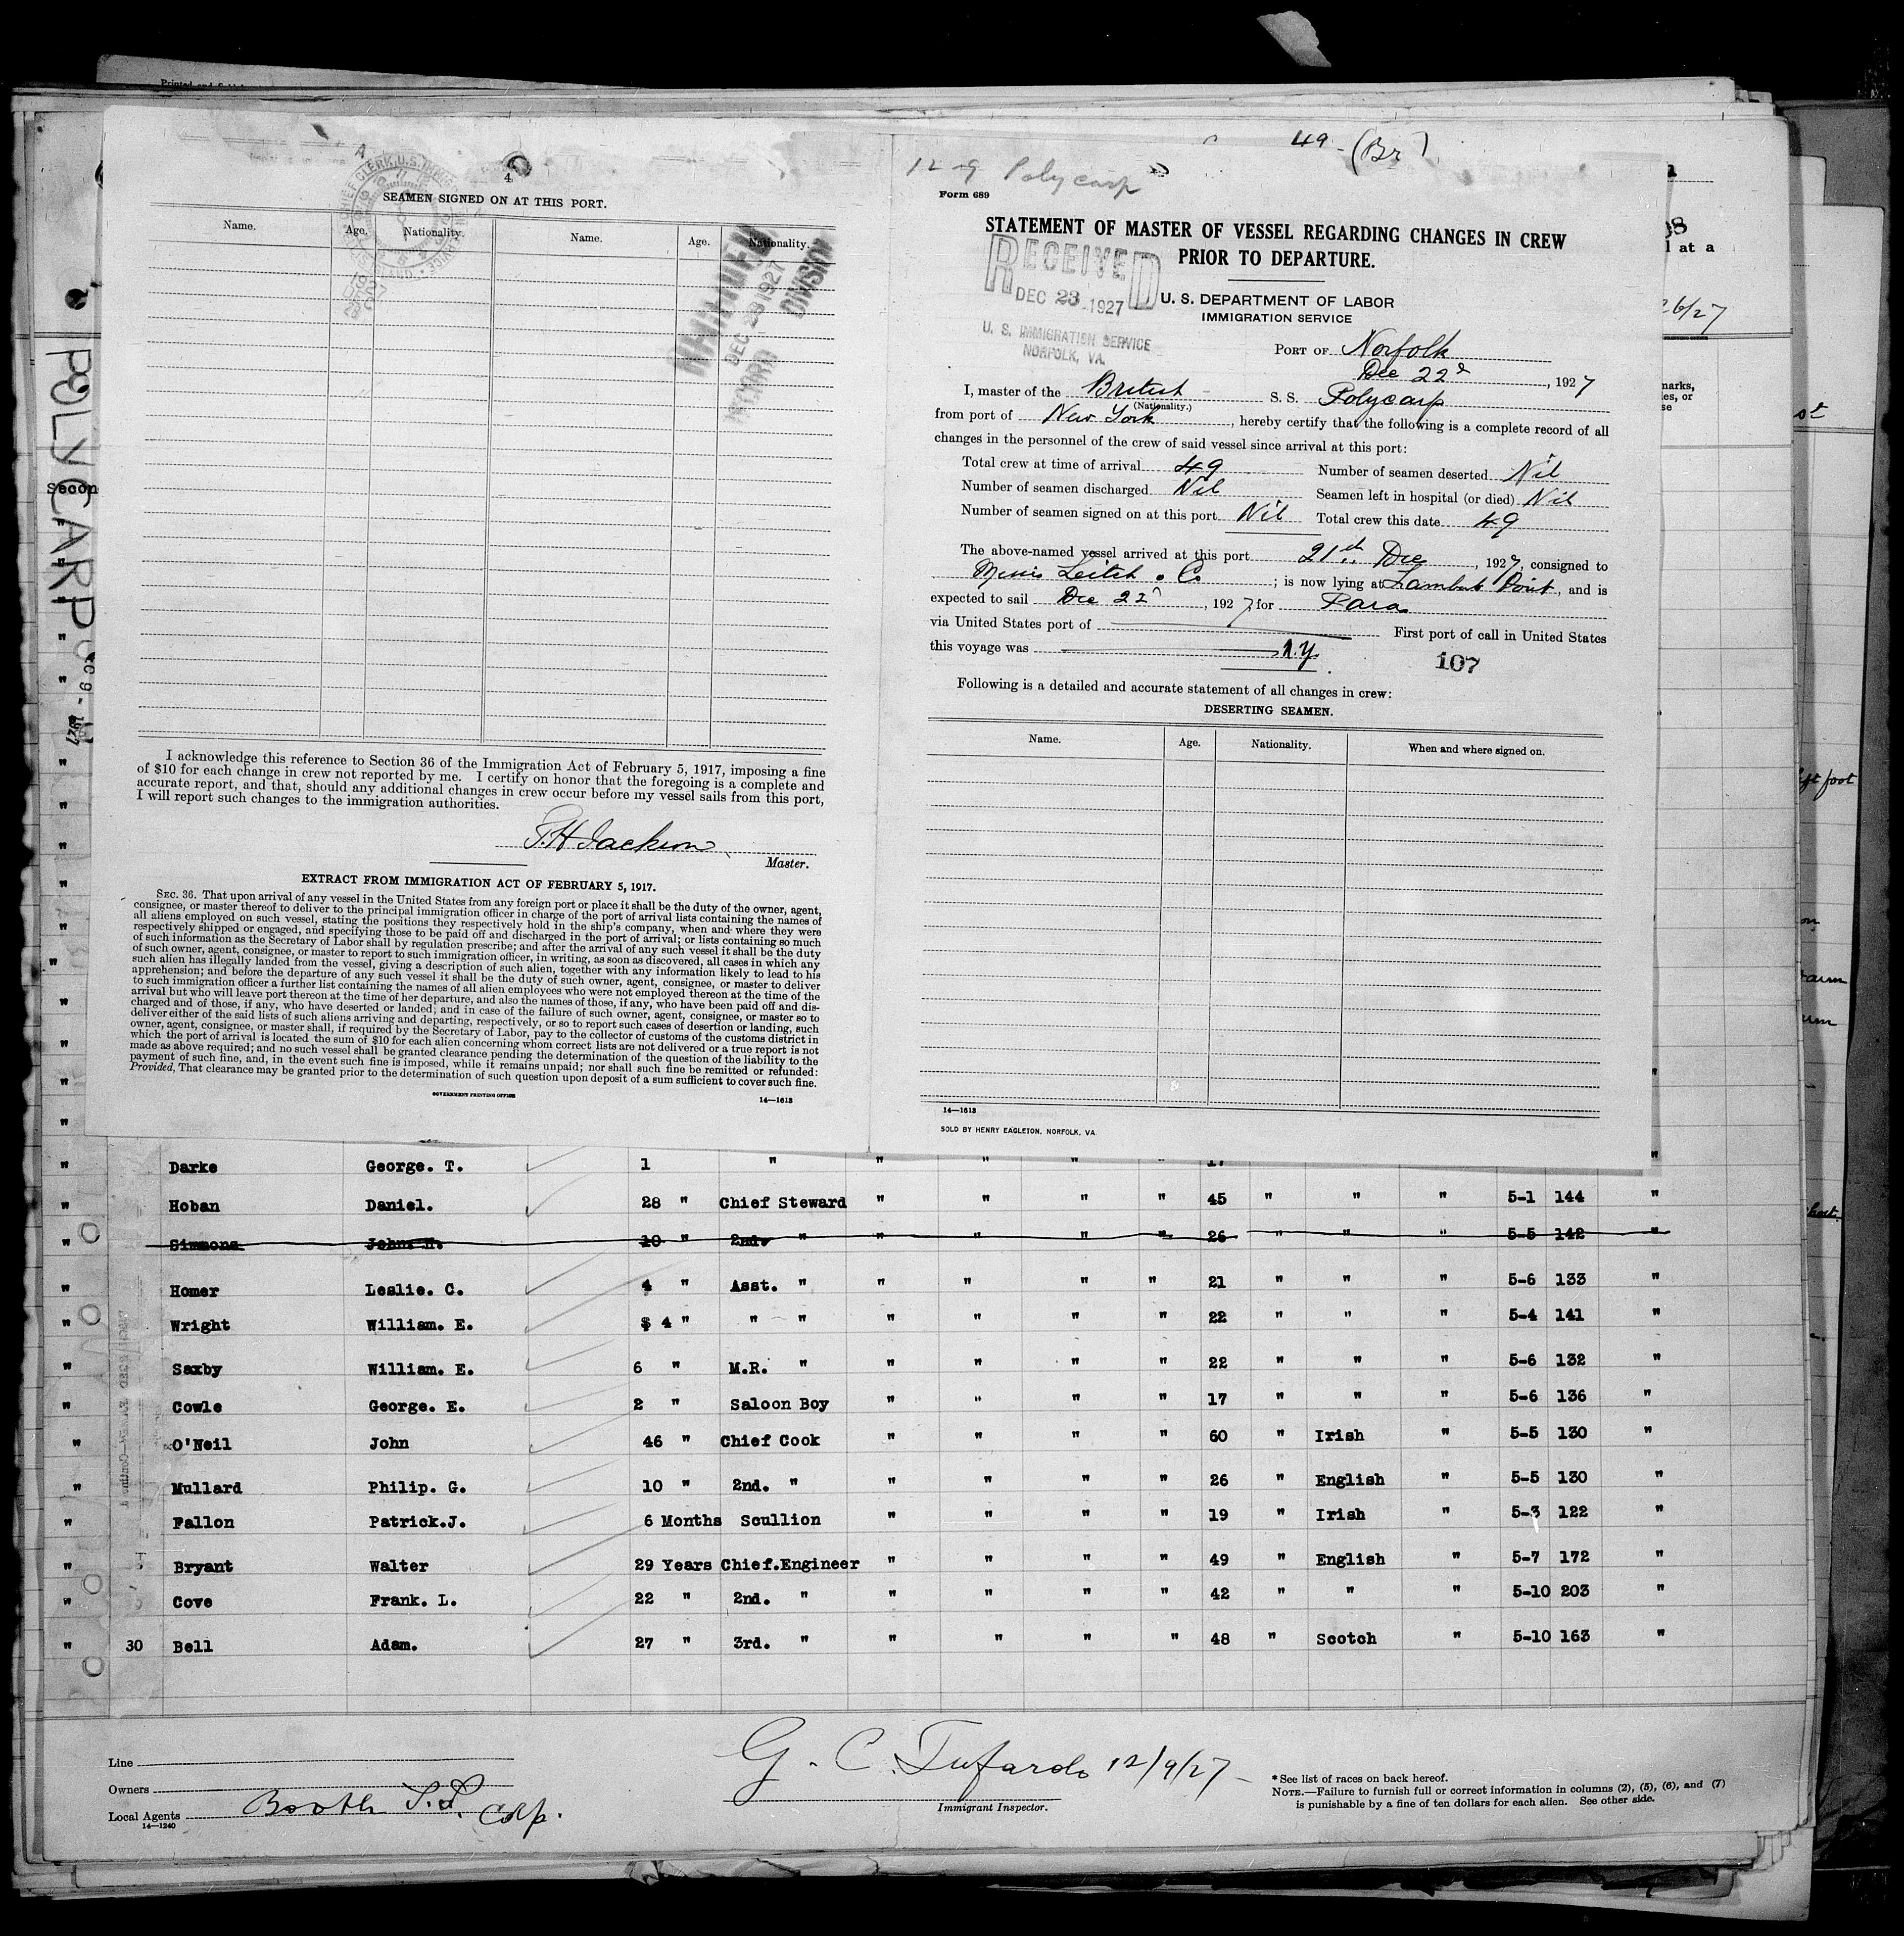 4
SEAMEN SIGNED ON AT THIS PORT.
Name. Age. Nationality. Name. Age. Nationality.
DEC 23 1927
DIVISION
I acknowledge this reference to Section 36 of the Immigration Act of February 5, 1917, imposing a fine
of $10 for each change in crew not reported by me. I certify on honor that the foregoing is a complete and
accurate report, and that, should any additional changes in crew occur before my vessel sails from this port,
I will report such changes to the immigration authorities.
T.H Jackson
Master.
EXTRACT FROM IMMIGRATION ACT OF FEBRUARY 5, 1917.
SEC. 36. That upon arrival of any vessel in the United States from any foreign port or place it shall be the duty of the owner, agent,
consignee, or master thereof to deliver to the principal immigration officer in charge of the port of arrival lists containing the names of
all aliens employed on such vessel, stating the positions they respectively hold in the ship's company, when and where they were
respectively shipped or engaged, and specifying those to be paid off and discharged in the port of arrival; or lists containing so much
of such information as the Secretary of Labor shall by regulation prescribe; and after the arrival of any such vessel it shall be the duty
of such owner, agent, consignee, or master to report to such immigration officer, in writing, as soon as discovered, all cases in which any
such alien has illegally landed from the vessel, giving a description of such alien, together with any information likely to lead to his
apprehension; and before the departure of any such vessel it shall be the duty of such owner, agent, consignee, or master to deliver
to such immigration officer a further list containing the names of all alien employees who were not employed thereon at the time of the
arrival but who will leave port thereon at the time of her departure, and also the names of those, if any, who have been paid off and dis-
charged and of those, if any, who have deserted or landed; and in case of the failure of such owner, agent, consignee, or master so to
deliver either of the said lists of such aliens arriving and departing, respectively, or so to report such cases of desertion or landing, such
owner, agent, consignee, or master shall, if required by the Secretary of Labor, pay to the collector of customs of the customs district in
which the port of arrival is located the sum of $10 for each alien concerning whom correct lists are not delivered or a true report is not
made as above required; and no such vessel shall be granted clearance pending the determination of the question of the liability to the
payment of such fine, and, in the event such fine is imposed, while it remains unpaid; nor shall such fine be remitted or refunded:
Provided, That clearance may be granted prior to the determination of such question upon deposit of a sum sufficient to cover such fine.
GOVERNMENT PRINTING OFFICE 14—1613
49 - (Br)
12-9 Polycarp
Form 689
STATEMENT OF MASTER OF VESSEL REGARDING CHANGES IN CREW
PRIOR TO DEPARTURE.
RECEIVED
DEC 23 1927
U. S. IMMIGRATION SERVICE
NORFOLK, VA.
U. S. DEPARTMENT OF LABOR
IMMIGRATION SERVICE
PORT OF Norfolk
Dec 22d, 1927
I, master of the British S. S. Polycarp
(Nationality.)
from port of New York, hereby certify that the following is a complete record of all
changes in the personnel of the crew of said vessel since arrival at this port:
Total crew at time of arrival 49 Number of seamen deserted Nil
Number of seamen discharged Nil Seamen left in hospital (or died) Nil
Number of seamen signed on at this port Nil Total crew this date 49
The above-named vessel arrived at this port 21st Dec, 1927, consigned to
Messrs Leitch & Co; is now lying at Lamberts Point, and is
expected to sail Dec 22d, 1927, for Para
via United States port of First port of call in United States
this voyage was N.Y.
107
Following is a detailed and accurate statement of all changes in crew:
DESERTING SEAMEN.
Name. Age. Nationality. When and where signed on.
14—1613
SOLD BY HENRY EAGLETON, NORFOLK, VA.
POLYCARP
Secon
l at a
26/27
Darke George. T. 1 " " " " " 17 "
" Hoban Daniel. 28 " Chief Steward " " " " 45 " " " 5-1 144 "
" Simmons John. H. 10 " 2nd. " " " " " 26 " " " 5-5 142 "
" Homer Leslie. C. 4 " Asst. " " " " " 21 " " " 5-6 133 "
" Wright William. E. $ 4 " " " " " " " 22 " " " 5-4 141 "
" Saxby William. E. 6 " M.R. " " " " " 22 " " " 5-6 132 "
" Cowle George. E. 2 " Saloon Boy " " " " 17 " " " 5-6 136 "
" O'Neil John 46 " Chief Cook " " " " 60 " Irish " 5-5 130 "
" Mullard Philip. G. 10 " 2nd. " " " " " 26 " English " 5-5 130 "
" Fallon Patrick.J. 6 Months Scullion " " " " 19 " Irish " 5-3 122 "
" Bryant Walter 29 Years Chief.Engineer " " " " 49 " English " 5-7 172 "
" Cove Frank. L. 22 " 2nd. " " " " " 42 " " " 5-10 203 "
" 30 Bell Adam. 27 " 3rd. " " " " " 48 " Scotch " 5-10 163 "
Line
Owners
Local Agents Booth S.S. Corp.
14—1240
G. C. Tufardo 12/9/27
Immigrant Inspector.
* See list of races on back hereof.
NOTE.—Failure to furnish full or correct information in columns (2), (5), (6), and (7)
is punishable by a fine of ten dollars for each alien. See other side.